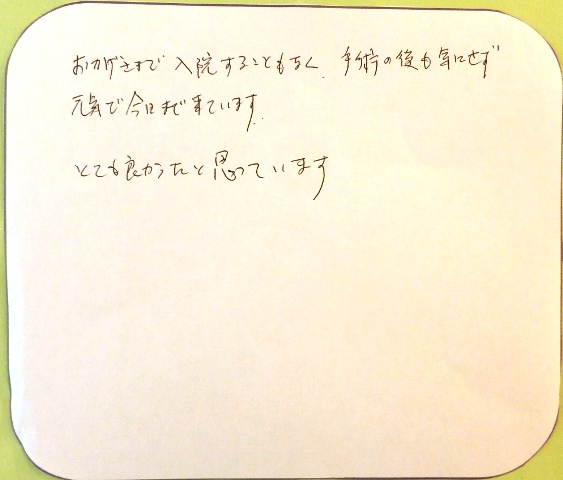 おかげさまで入院することもなく、手術の後も気にせず
元気で今日まで来ています。
とても良かったと思っています